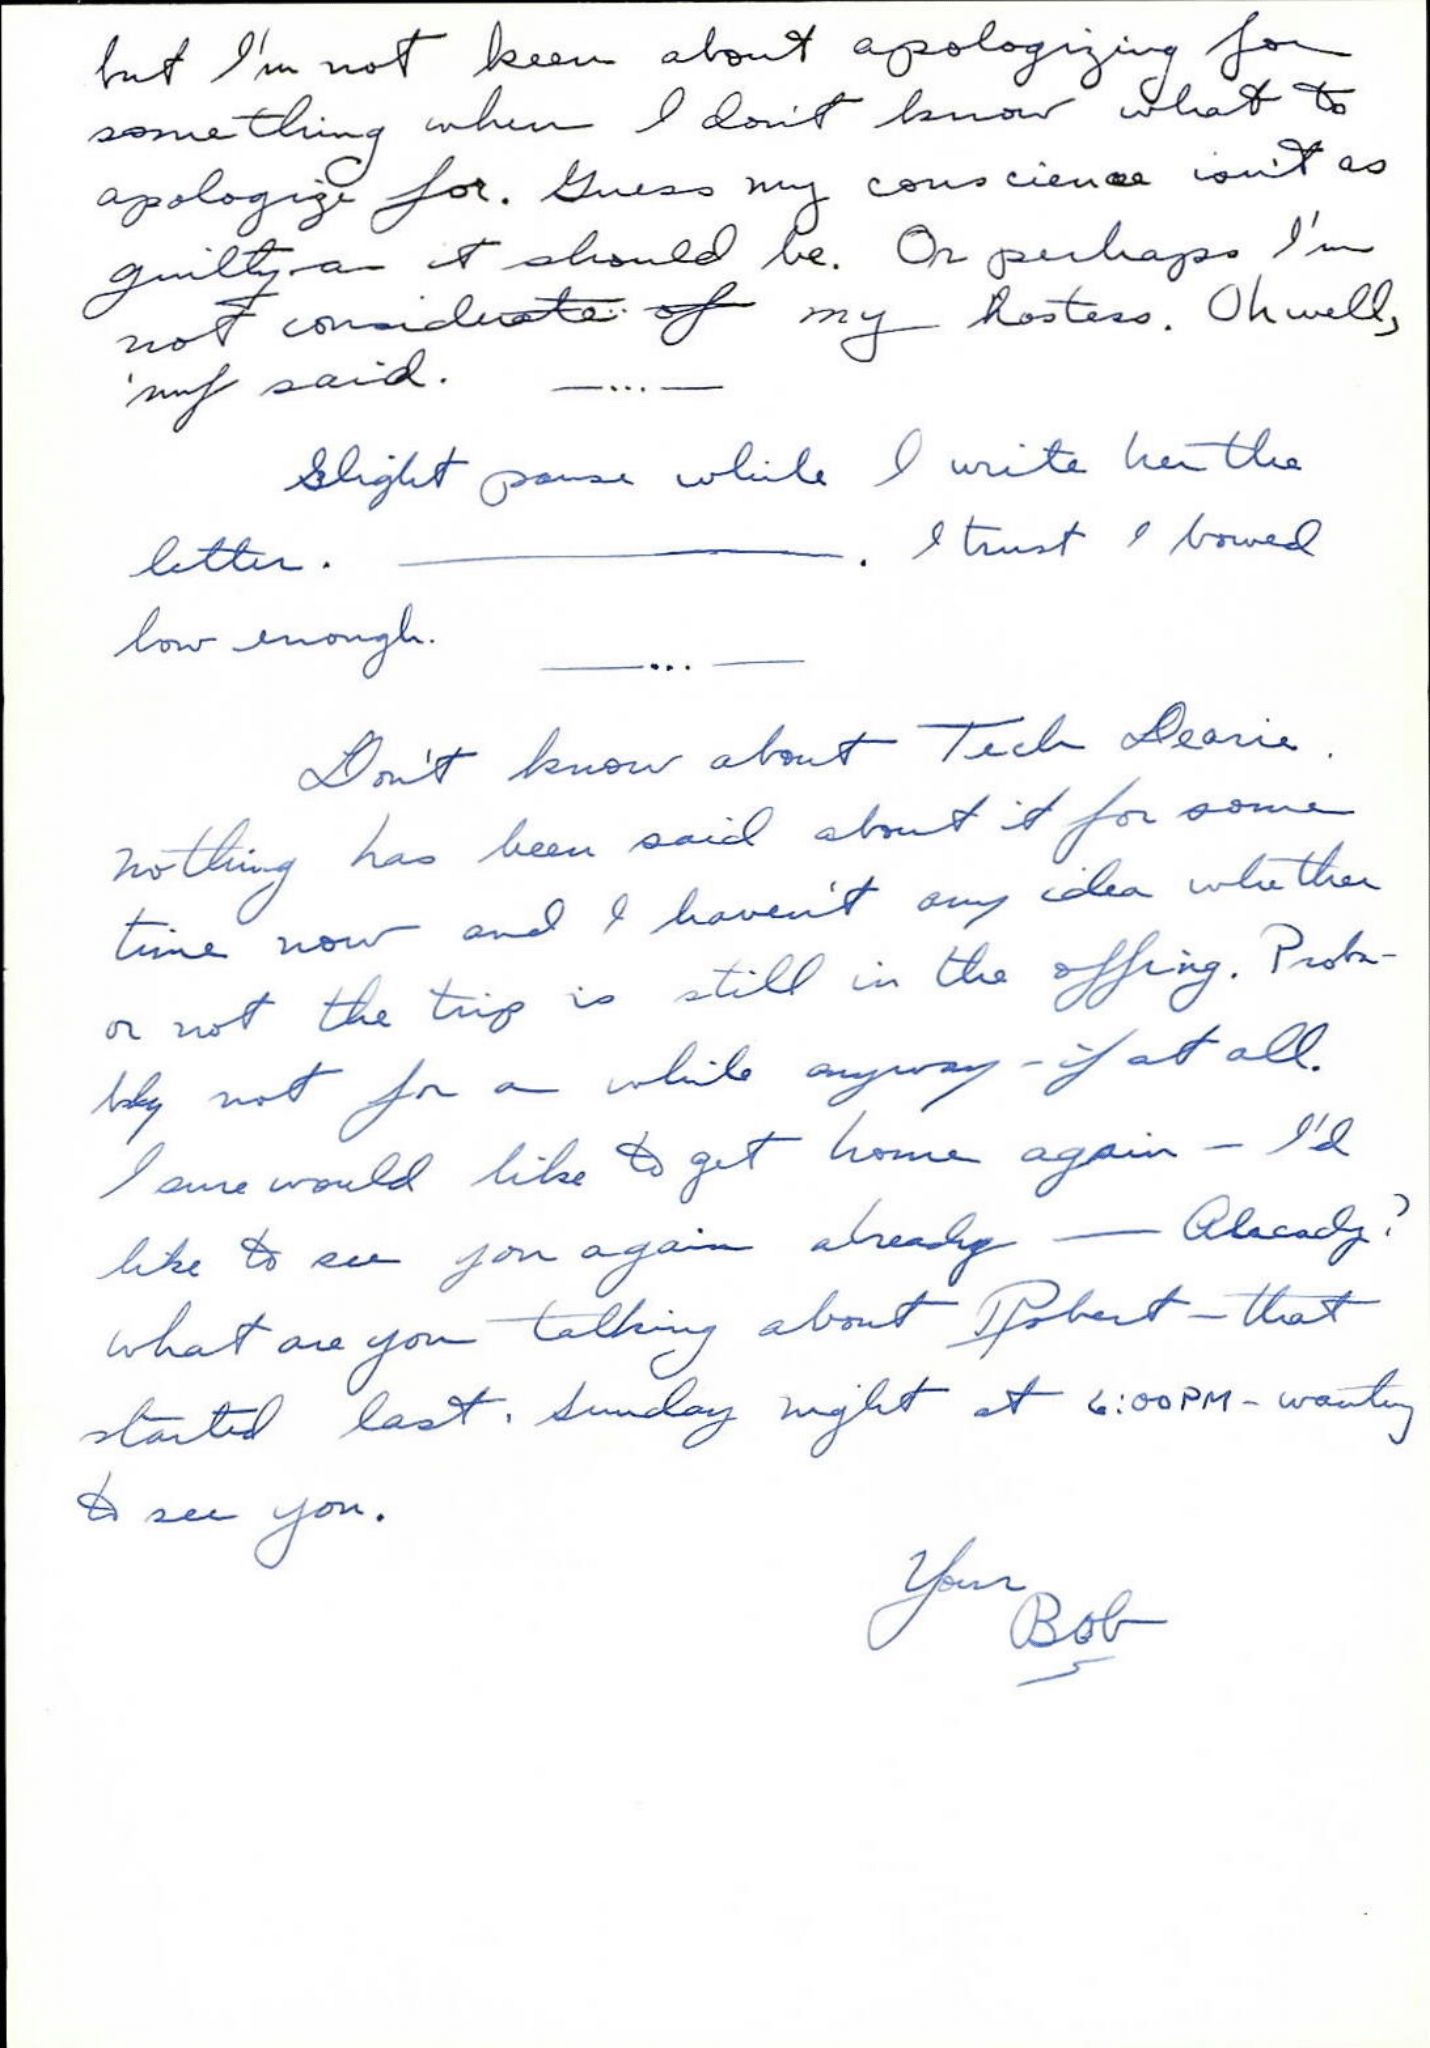 but I'm not keen about apologizing for
something when I don't know what to
apologize for. Guess my conscience isn't as
guilty as it should be. Or perhaps I'm
not considerate of my hostess. Oh well,
'nuf said. —...—
Slight pause while I write her the
letter. ————. I trust I bowed
low enough.
—...—
Don't know about Tech Dearie.
Nothing has been said about it for some
time now and I haven't any idea whether
or not the trip is still in the offing. Proba-
bly not for a while anyway - if at all.
I sure would like to get home again - I'd
like to see you again already — Already?
what are you talking about Robert - that
started last Sunday night at 6:00 PM - wanting
to see you.
Your
Bob